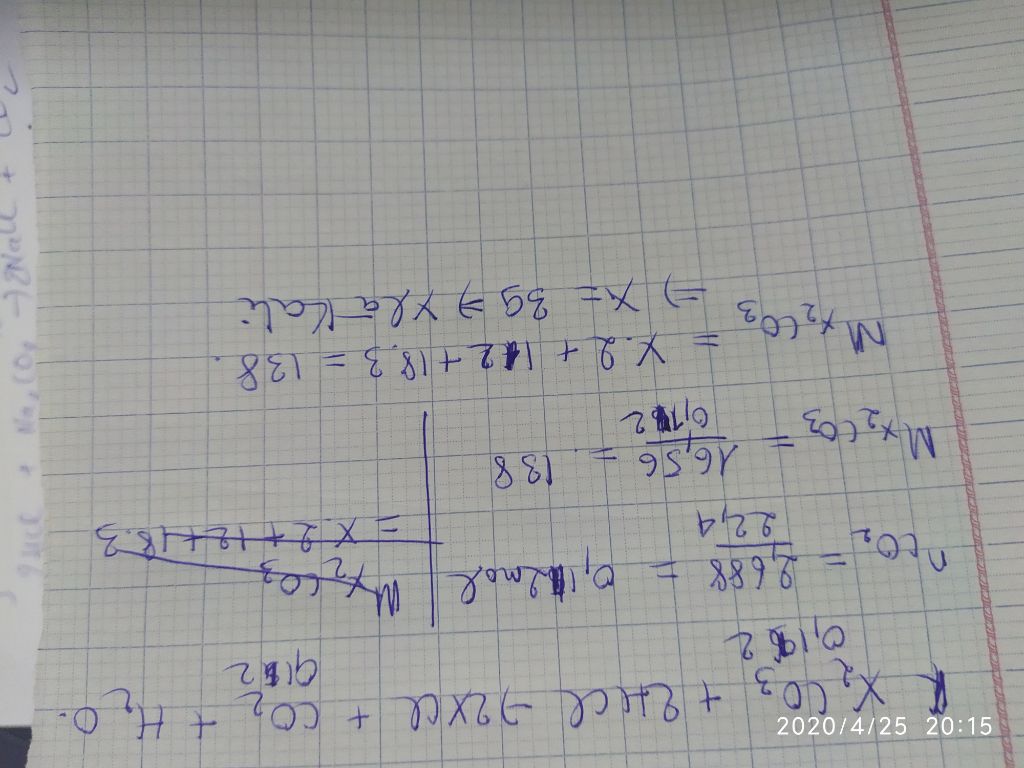 X₂CO₃ + 2HCl → 2XCl + CO₂ + H₂O.
0,12 0,12
nCO₂ = 2,688 / 22,4 = 0,12mol
M X₂CO₃ = X.2 + 12 + 18.3
M X₂CO₃ = 16,56 / 0,12 = 138
M X₂CO₃ = X.2 + 12 + 18.3 = 138.
=> X = 39 => X là Kali
2HCl + Na₂CO₃ → 2NaCl + CO₂
2020/4/25 20:15